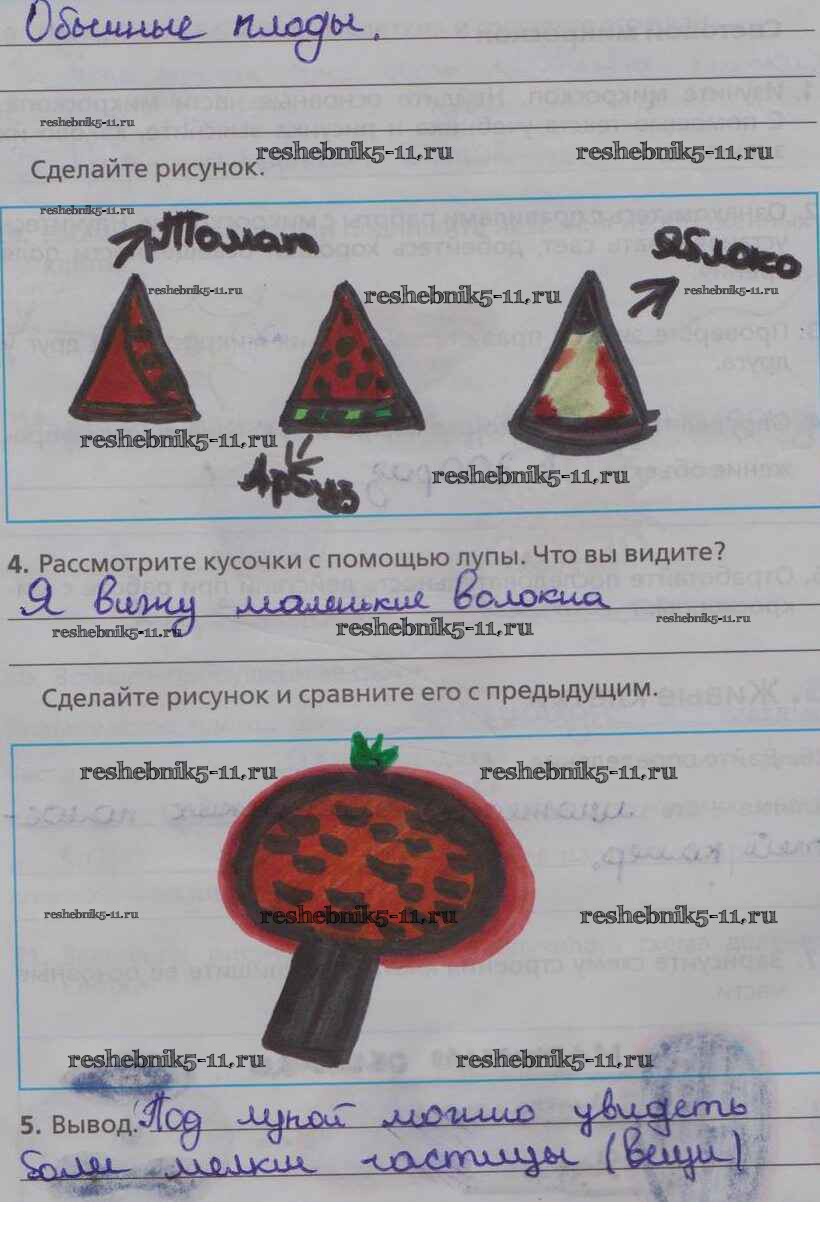 Обычные плоды.
reshebnik5-11.ru
reshebnik5-11.ru reshebnik5-11.ru
Сделайте рисунок.
reshebnik5-11.ru
Томат
Яблоко
reshebnik5-11.ru reshebnik5-11.ru reshebnik5-11.ru
reshebnik5-11.ru
Арбуз
reshebnik5-11.ru
4. Рассмотрите кусочки с помощью лупы. Что вы видите?
Я вижу маленькие волокна
reshebnik5-11.ru reshebnik5-11.ru reshebnik5-11.ru
Сделайте рисунок и сравните его с предыдущим.
reshebnik5-11.ru reshebnik5-11.ru
reshebnik5-11.ru reshebnik5-11.ru reshebnik5-11.ru
reshebnik5-11.ru reshebnik5-11.ru
5. Вывод. Под лупой можно увидеть
более мелкие частицы (вещи)